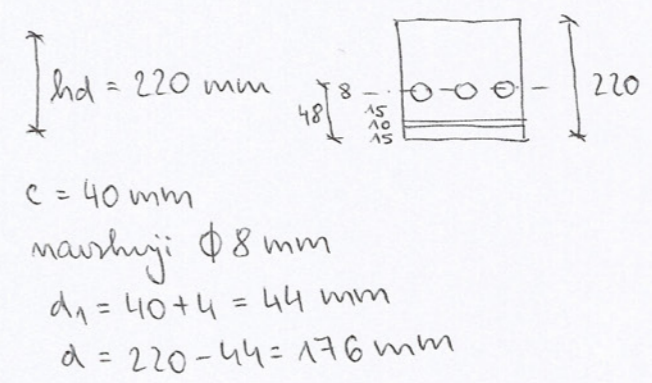 hd = 220 mm
48
8
15
10
15
220
c = 40 mm
navrhuji ϕ 8 mm
d₁ = 40 + 4 = 44 mm
d = 220 - 44 = 176 mm